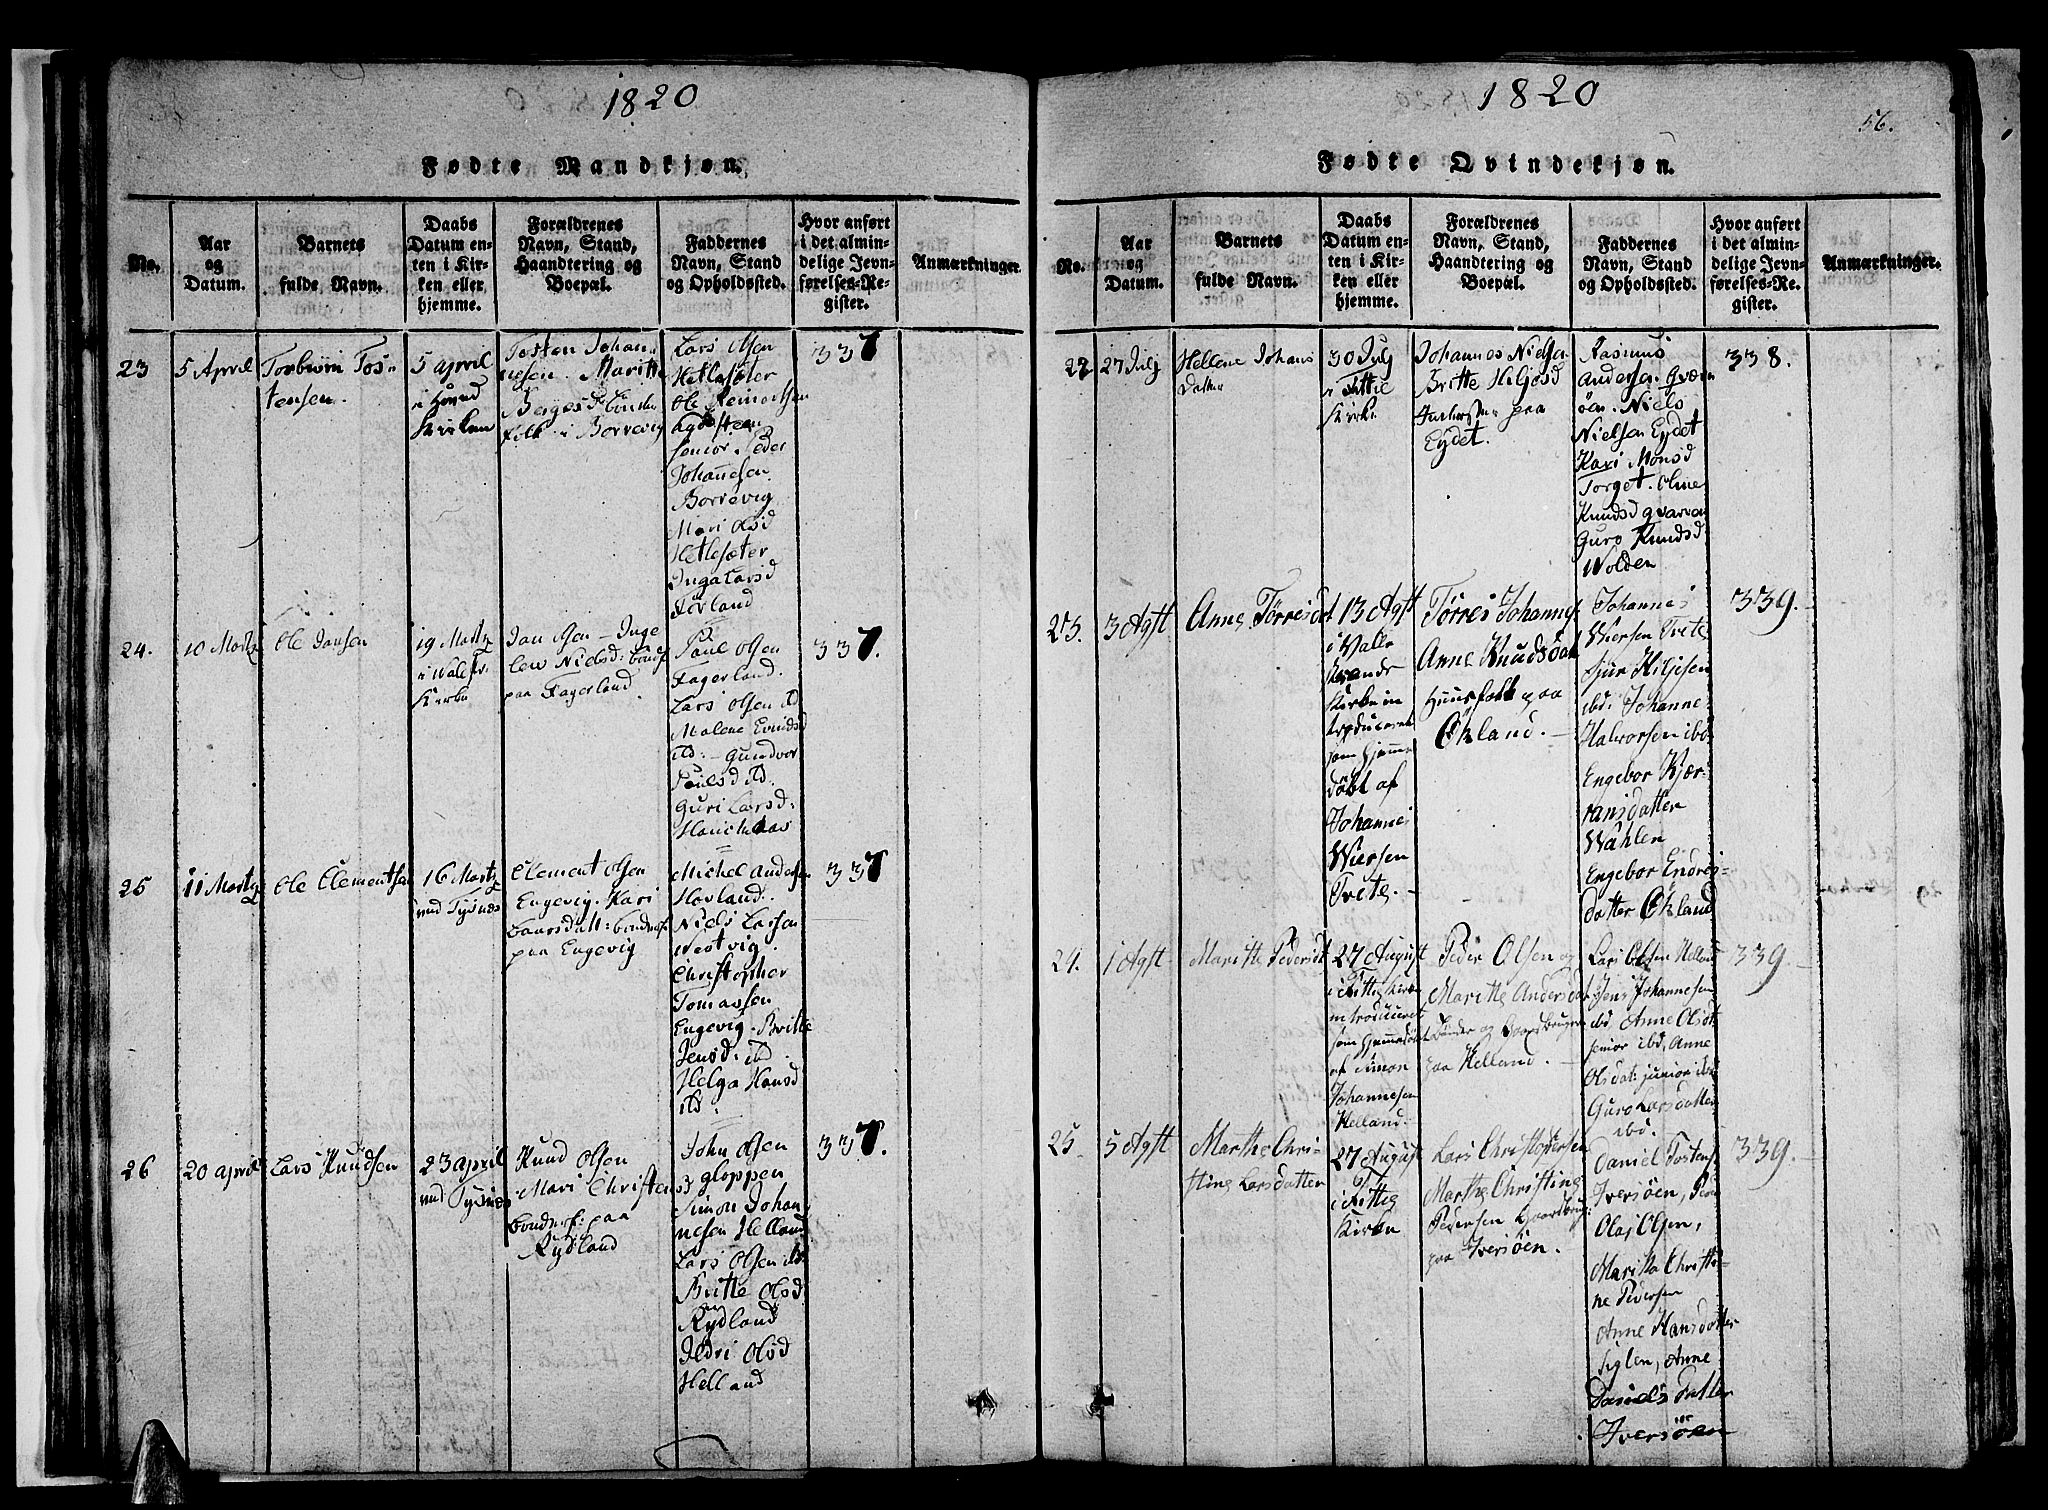 1820
Fødte Mandkjøn.
No.
Aar
og
Datum.
Barnets
fulde Navn.
Daabs
Datum en-
ten i Kir-
ken eller
hjemme.
Forældrenes
Navn, Stand,
Haandtering og
Boepæl.
Faddernes
Navn, Stand
og Opholdssted.
Hvor anført
i det almin-
delige Jevn-
førelses-Re-
gister.
Anmærkninger.
23
5 April
Torbiörn Tos-
tensen.
5 april
i
Kirken
Tosten Johan-
nesen. Maritte
i Borrevig
Lars Olsen
Hetlesæter
Ole
senior. Peder
Johannesen
Borrevig
Mari Olsd
Hetlesæter
Inga Larsd
337
24.
10 Martz
Ole Jansen
19 Martz
i
Kirke
Jan Olsen - Inge
len Nielsd: bondf
paa Fagerland.
Paul Olsen
Fagerland.
Lars Olsen ibd
Malene
ibd: - Gundvor
Paulsd ibd
Guri Larsd:
337.
25
11 Martz
Ole Clementsen
16 Martz
ved Tysnes
Clement Olsen
Engevig. Kari
Larsdatt: bondef
paa Engevig
Michel Andersen
Hovland:
Niels Larsen
Westvig.
Christopher
Tomassen
Engevig. Britte
Jensd: ibd.
Helga Hansd
ibd:
337
26
20 april
Lars Knudsen
23 april
ved Tysnes
Knud Olsen
Mari Christensd
bondef: paa
Rydland
John Olsen
gloppen
Simon Johan-
nesen Helland
Lars Olsen ibd
Britte Olsd
Rydland
Olsd
Helland
337.
1820
56.
Fødte Qvindekjøn.
No.
Aar
og
Datum.
Barnets
fulde Navn.
Daabs
Datum en-
ten i Kir-
ken eller
hjemme.
Forældrenes
Navn, Stand,
Haandtering og
Boepæl.
Faddernes
Navn, Stand
og Opholdssted.
Hvor anført
i det almin-
delige Jevn-
førelses-Re-
gister.
Anmærkninger.
22
27 July
Hellene Johans
datter
30 July
i Fittie
Kirke
Johannes Nielsen
Britte Hiljesd
paa
Eydet.
Rasmus
Andersen
Niels
Nielsen Eydet
Kari Monsd
Torget. Olene
Knudsd
Guro Knudsd
Wolden
338.
23.
3 Agst
Anne Tørresdt
13 Agst
i Valle
Kirke in
troduceret
som hjemme
döbt af
Johannes
Wiersen
Tvete. -
Tørres Johannes
Anne Knudsdat
Huusfolk paa
Økland. -
Johannes
Wiersen Tvete
Sjur Hiljesen
ibd. Johanne
Halvorsen ibd
Engebor Kjær-
ransdatter
Wahlen
Engebor Endres-
datter Økland
339.
24.
1 Agst
Maritte Pedersdt
27 August
i Fittie Kirke
introduceret
som hjemmedöbt
af Simon
Johannesen
Helland.
Peder Olsen og
Maritte Andersdat
Bönder og Gaardbrugere
paa Helland. -
Lars Olsen Helland
Jens Johannesen
ibd, Anne Olsdt
senior ibd, Anne
Olsdat: junior ibd
Guro Larsdatter
ibd.
339.
25
5 Agst
Marthe Chri-
stine Larsdatter
27 August
i Fittie
Kirke
Lars Christophersen
Marthe Christine
Pedersen Gaardbrug:
paa Iversöen.
Daniel Tostens
Iversöen, Peder
Olai Olsen,
Maritta Christi-
ne Pedersen
Anne Hansdatter
Siglen, Anne
Daniels Datter
Iversöen
339.